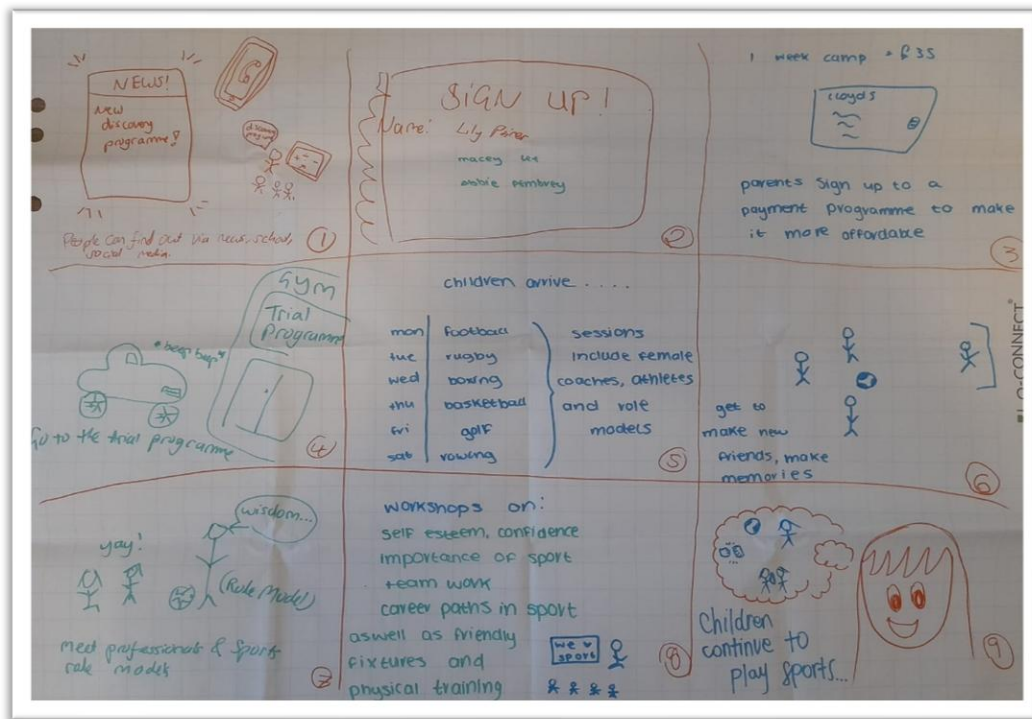 NEWS!
New
discovery
programme!
discovery
People can find out via news, school,
social media.
1
SIGN UP!
Name: Lily
macey
abbie Pembrey
2
1 week camp = £35
Lloyds
parents sign up to a
payment programme to make
it more affordable
3
Gym
Trial
Programme
*beep beep*
Go to the trial programme
4
children arrive .....
mon football
tue rugby
wed boxing
thu basketball
fri golf
sat rowing
sessions
include female
coaches, athletes
and role
models
5
get to
make new
friends, make
memories
6
wisdom...
yay!
(Role Model)
meet professionals & sports
role models
7
workshops on:
self esteem, confidence
importance of sport
team work
career paths in sport
aswell as friendly
fixtures and
physical training
we ♥
sport
8
Children
continue to
play sports...
9
O-CONNECT®